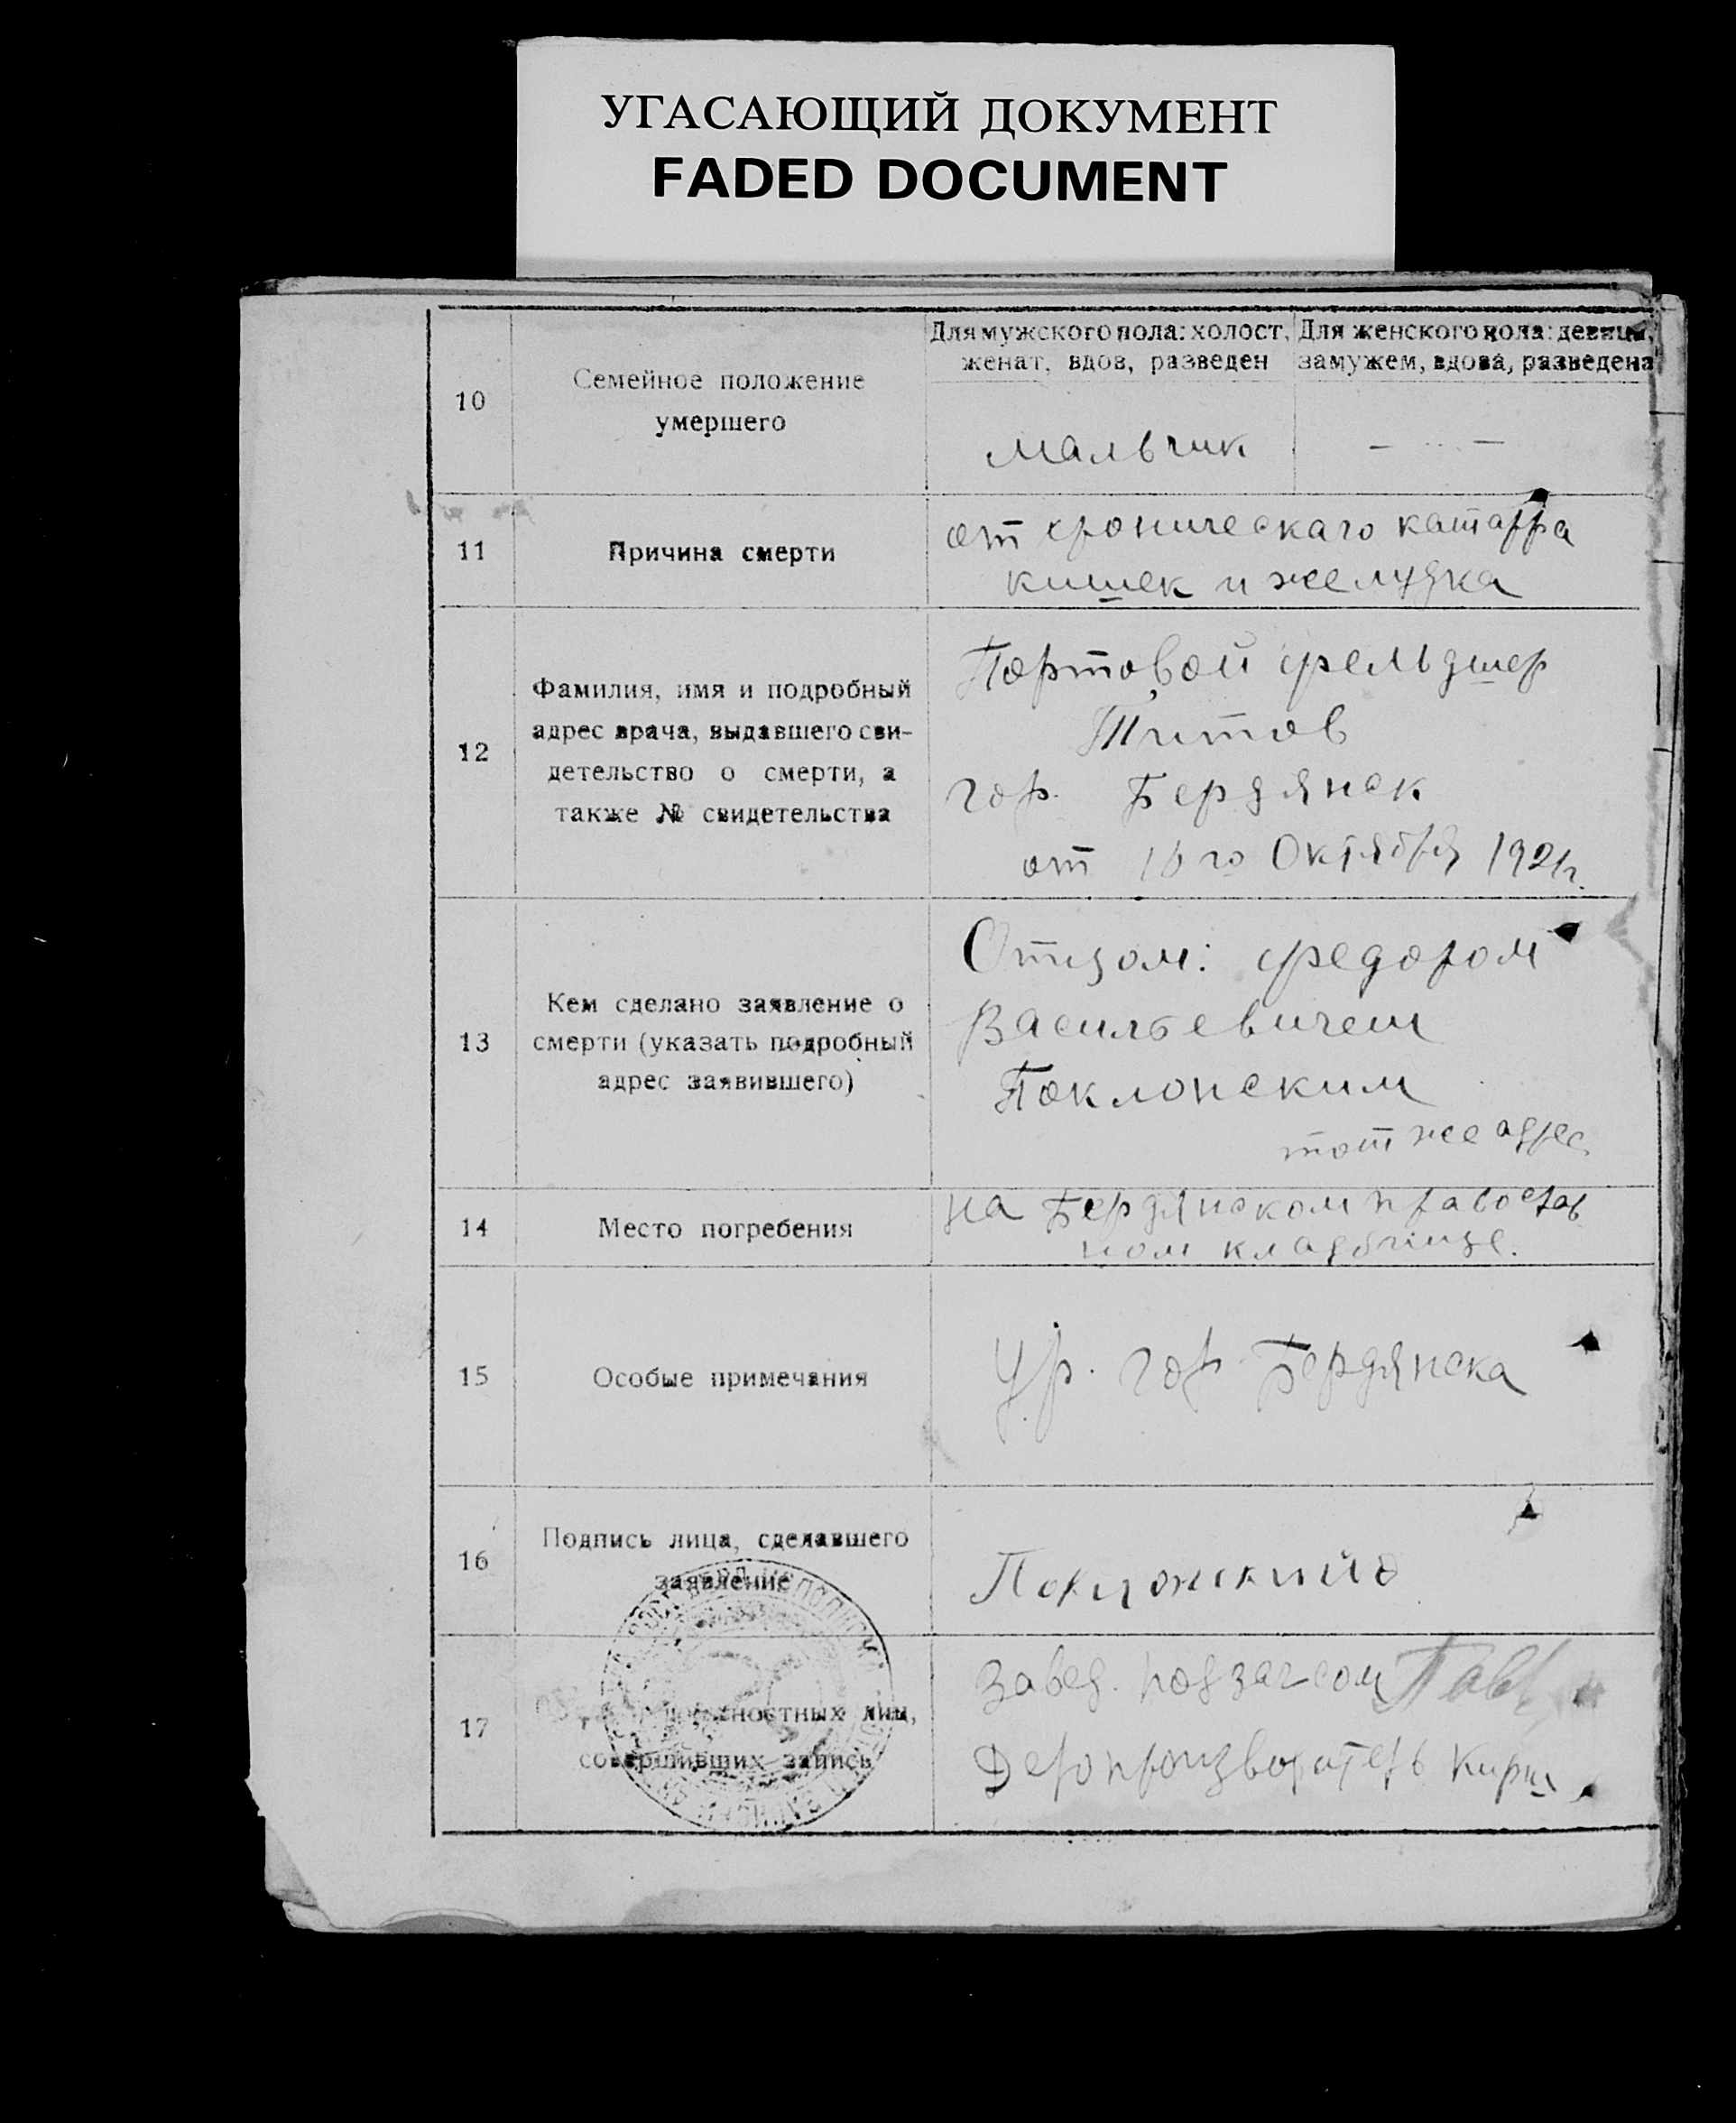 УГАСАЮЩИЙ ДОКУМЕНТ
FADED DOCUMENT
10
Семейное положение
умершего
Для мужского пола: холост,
женат, вдов, разведен
Для женского пола: девица,
замужем, вдова, разведена
мальчик
— — 
11
Причина смерти
от хроническаго катарра
кишек и желудка
12
Фамилия, имя и подробный
адрес врача, выдавшего сви-
детельство о смерти, а
также № свидетельства
Портовой фельдшер
Титов
гор. Бердянск
от 16 го Октября 1921 г.
13
Кем сделано заявление о
смерти (указать подробный
адрес заявившего)
Отцом: Федором
Васильевичем
Поклонским
тот же адрес
14
Место погребения
на Бердянском православ
ном кладбище.
15
Особые примечания
Ур. гор. Бердянска
16
Подпись лица, сделавшего
заявление
Поклонский
17
должностных лиц,
совершивших запись
Завед. подзагсом
Делопроизводитель